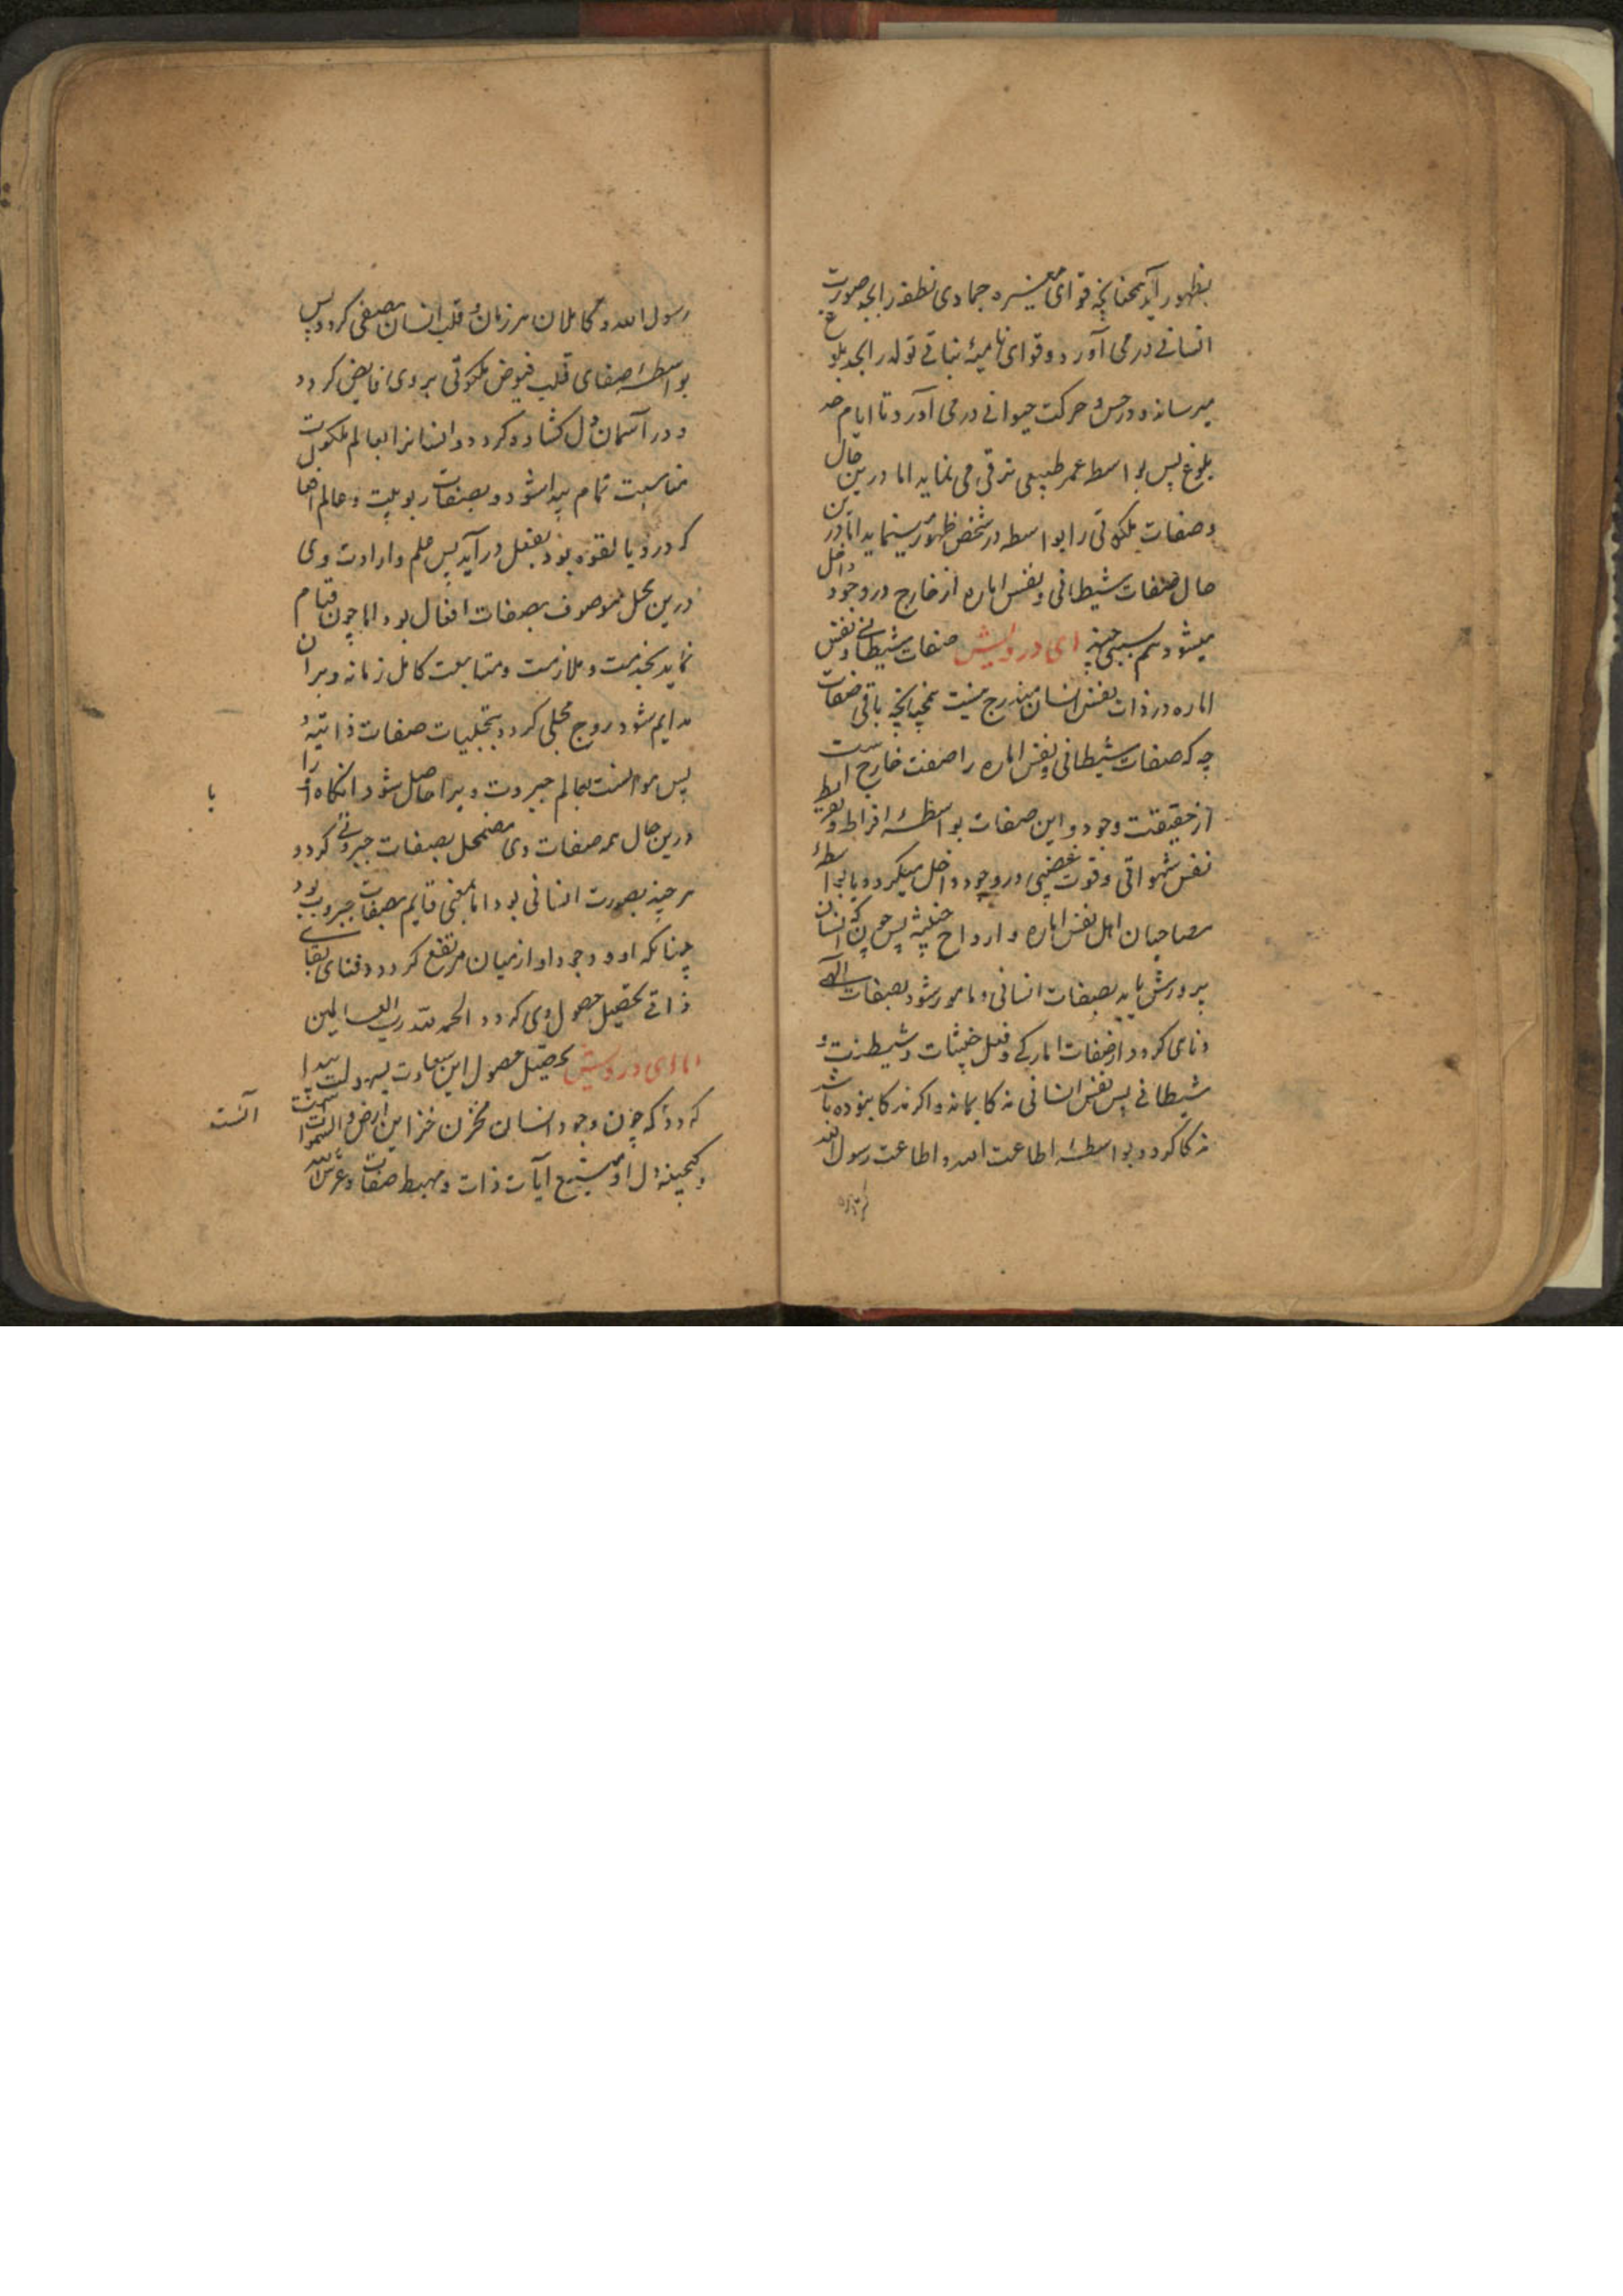 بظهور آید همچنانچه قوای مغیره جمادی نطفه را بحد صورت
انسانی در می آورد و قوای نامیهٔ نباتی تولد را بحد بلوغ
میرساند و در حس و حرکت حیوانی در می آورد تا ایام حد
بلوغ پس بواسط عمر طبیعی ترقی می نماید اما درین حال
وصفات ملکوتی را بواسطه در شخص ظهور مینماید اما درین
حال صفات شیطانی و نفس اماره از خارج در وجود داخل
میشود هم بسبی چند ای درویش صفات شیطانی و نفس
اماره در ذات نفس انسان مندرج نیست همچنانچه باقی صفات
چه که صفات شیطانی و نفس اماره را صفت خارج است
از حقیقت وجود و این صفات بواسطهٔ افراط و تفریط
نفس شهواتی و قوت غضبی در وجود داخل میکردد یا بواسطهٔ
مصاحبان اهل نفس اماره و ارواح خبیثه پس چون که انسان
پرورش یابد بصفات انسانی و مامور شود بصفات الهی
و ناهی کردد از صفات امارکی و فعل خبیثات و شیطنت و
شیطانی پس نفس انسانی مزکا بماند و اکر مزکا نبوده باشد
مزکا کردد بواسطهٔ اطاعت الله و اطاعت رسول الله
رسول الله و کاملان هر زمان و قلب انسان مصفی کردد پس
بواسطهٔ صفای قلب فیوض ملکوتی بر وی فایض کردد
و در آسمان دل کشاده کردد و انسانرا بعالم ملکوت
مناسبت تمام پیدا شود و بصفات ربوبیت و عالم
که در و بالقوه بود بفعل در آید پس علم و ارادت وی
درین محل موصوف بصفات افعال بود اما چون قیام
نماید بخدمت و ملازمت و متابعت کامل زمانه و بران
مدایم شود روح مجلی کردد بتجلیات صفات ذاتیه و
پس موانست بعالم جبروت ویرا حاصل شود انکاه او را
یا
درین حال همه صفات وی مضمحل بصفات جبروتی کردد
هر چند بصورت انسانی بود اما بمعنی قایم بصفات جبروت بود
چنانکه او و وجود او از میان مرتفع کردد و فنای بقای
ذاتی تحصیل حصول وی کردد الحمد لله رب العالمین
اما ای درویش تحصیل حصول این سعادت بسهولت پیدا
کردد که چون وجود انسان مخزن خزاین ارض و السموات است
آنست
و کنجینهٔ دل او منبع آیات ذات و مهبط صفات و عرش الله